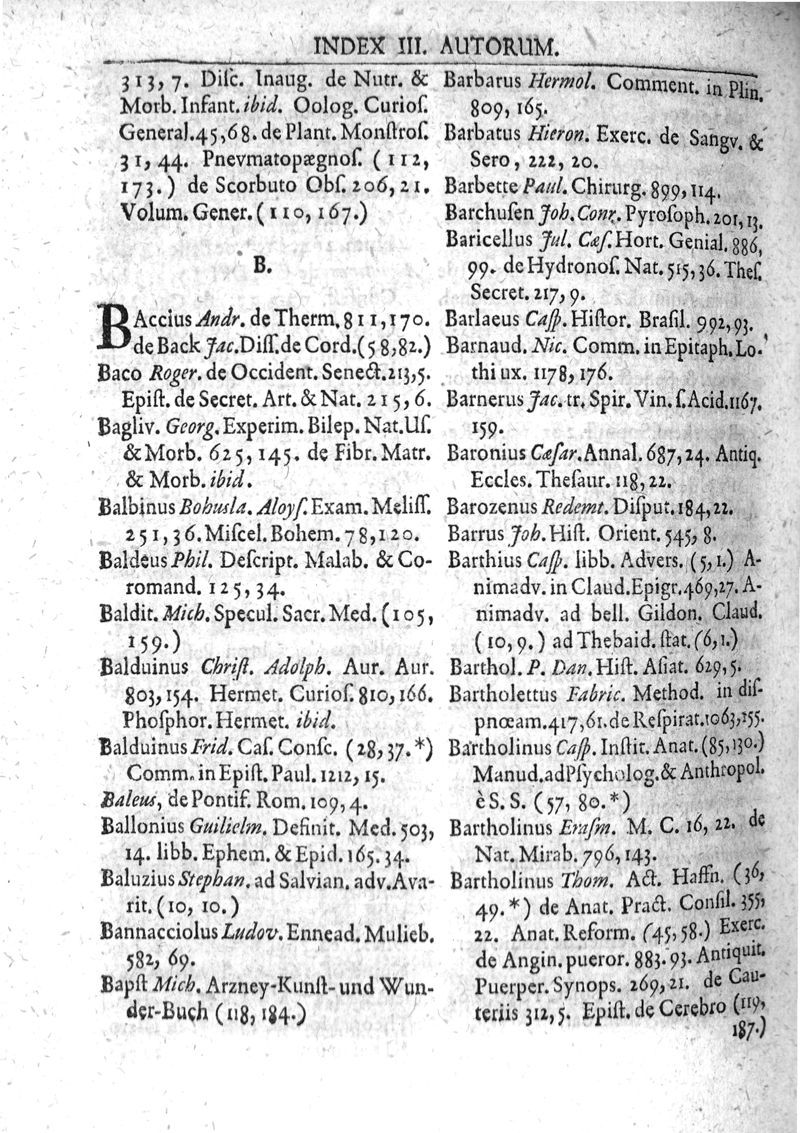 INDEX III. AUTORUM.
313, 7. Diſc. Inaug. de Nutr. &
Morb. Infant. ibid. Oolog. Curioſ.
General. 45, 68. de Plant. Monſtroſ.
31, 44. Pnevmatopægnoſ. (112,
173.) de Scorbuto Obſ. 206, 21.
Volum. Gener. (110, 167.)
B.
BAccius Andr. de Therm. 811, 170.
de Back Jac. Diſſ. de Cord. (58, 82.)
Baco Roger. de Occident. Senect. 213, 5.
Epiſt. de Secret. Art. & Nat. 215, 6.
Bagliv. Georg. Experim. Bilep. Nat. Uſ.
& Morb. 625, 145. de Fibr. Matr.
& Morb. ibid.
Balbinus Bohusla. Aloyſ. Exam. Meliſſ.
251, 36. Miſcel. Bohem. 78, 120.
Baldeus Phil. Deſcript. Malab. & Co-
romand. 125, 34.
Baldit. Mich. Specul. Sacr. Med. (105,
159.)
Balduinus Chriſt. Adolph. Aur. Aur.
803, 154. Hermet. Curioſ. 810, 166.
Phoſphor. Hermet. ibid.
Balduinus Frid. Caſ. Conſc. (28, 37.*)
Comm. in Epiſt. Paul. 1212, 15.
Baleus, de Pontif. Rom. 109, 4.
Ballonius Guilielm. Definit. Med. 503,
14. libb. Ephem. & Epid. 165. 34.
Baluzius Stephan. ad Salvian. adv. Ava-
rit. (10, 10.)
Bannacciolus Ludov. Ennead. Mulieb.
582, 69.
Bapſt Mich. Arzney-Kunſt- und Wun-
der-Buch (118, 184.)
Barbarus Hermol. Comment. in Plin.
809, 165.
Barbatus Hieron. Exerc. de Sangv. &
Sero, 222, 20.
Barbette Paul. Chirurg. 899, 114.
Barchuſen Joh. Conr. Pyroſoph. 201, 13.
Baricellus Jul. Cæſ. Hort. Genial. 886,
99. de Hydronoſ. Nat. 515, 36. Theſ.
Secret. 217, 9.
Barlaeus Caſp. Hiſtor. Braſil. 992, 93.
Barnaud. Nic. Comm. in Epitaph. Lo-
thi ux. 1178, 176.
Barnerus Jac. tr. Spir. Vin. ſ. Acid. 1167.
159.
Baronius Cæſar. Annal. 687, 24. Antiq.
Eccleſ. Theſaur. 118, 22.
Barozenus Redemt. Diſput. 184, 22.
Barrus Joh. Hiſt. Orient. 545, 8.
Barthius Caſp. libb. Adverſ. (5, 1.) A-
nimadv. in Claud. Epigr. 469, 27. A-
nimadv. ad bell. Gildon. Claud.
(10, 9.) ad Thebaid. ſtat. (6, 1.)
Barthol. P. Dan. Hiſt. Aſiat. 629, 5.
Bartholettus Fabric. Method. in diſ-
pnœam. 417, 61. de Reſpirat. 1063, 255.
Bartholinus Caſp. Inſtit. Anat. (85, 130.)
Manud. ad Pſycholog. & Anthropol.
è S. S. (57, 80.*)
Bartholinus Eraſm. M. C. 16, 22. de
Nat. Mirab. 796, 143.
Bartholinus Thom. Act. Haffn. (36,
49.*) de Anat. Pract. Conſil. 355,
22. Anat. Reform. (45, 58.) Exerc.
de Angin. pueror. 883. 93. Antiquit.
Puerper. Synops. 269, 21. de Cau-
teriis 312, 5. Epiſt. de Cerebro (119,
187.)